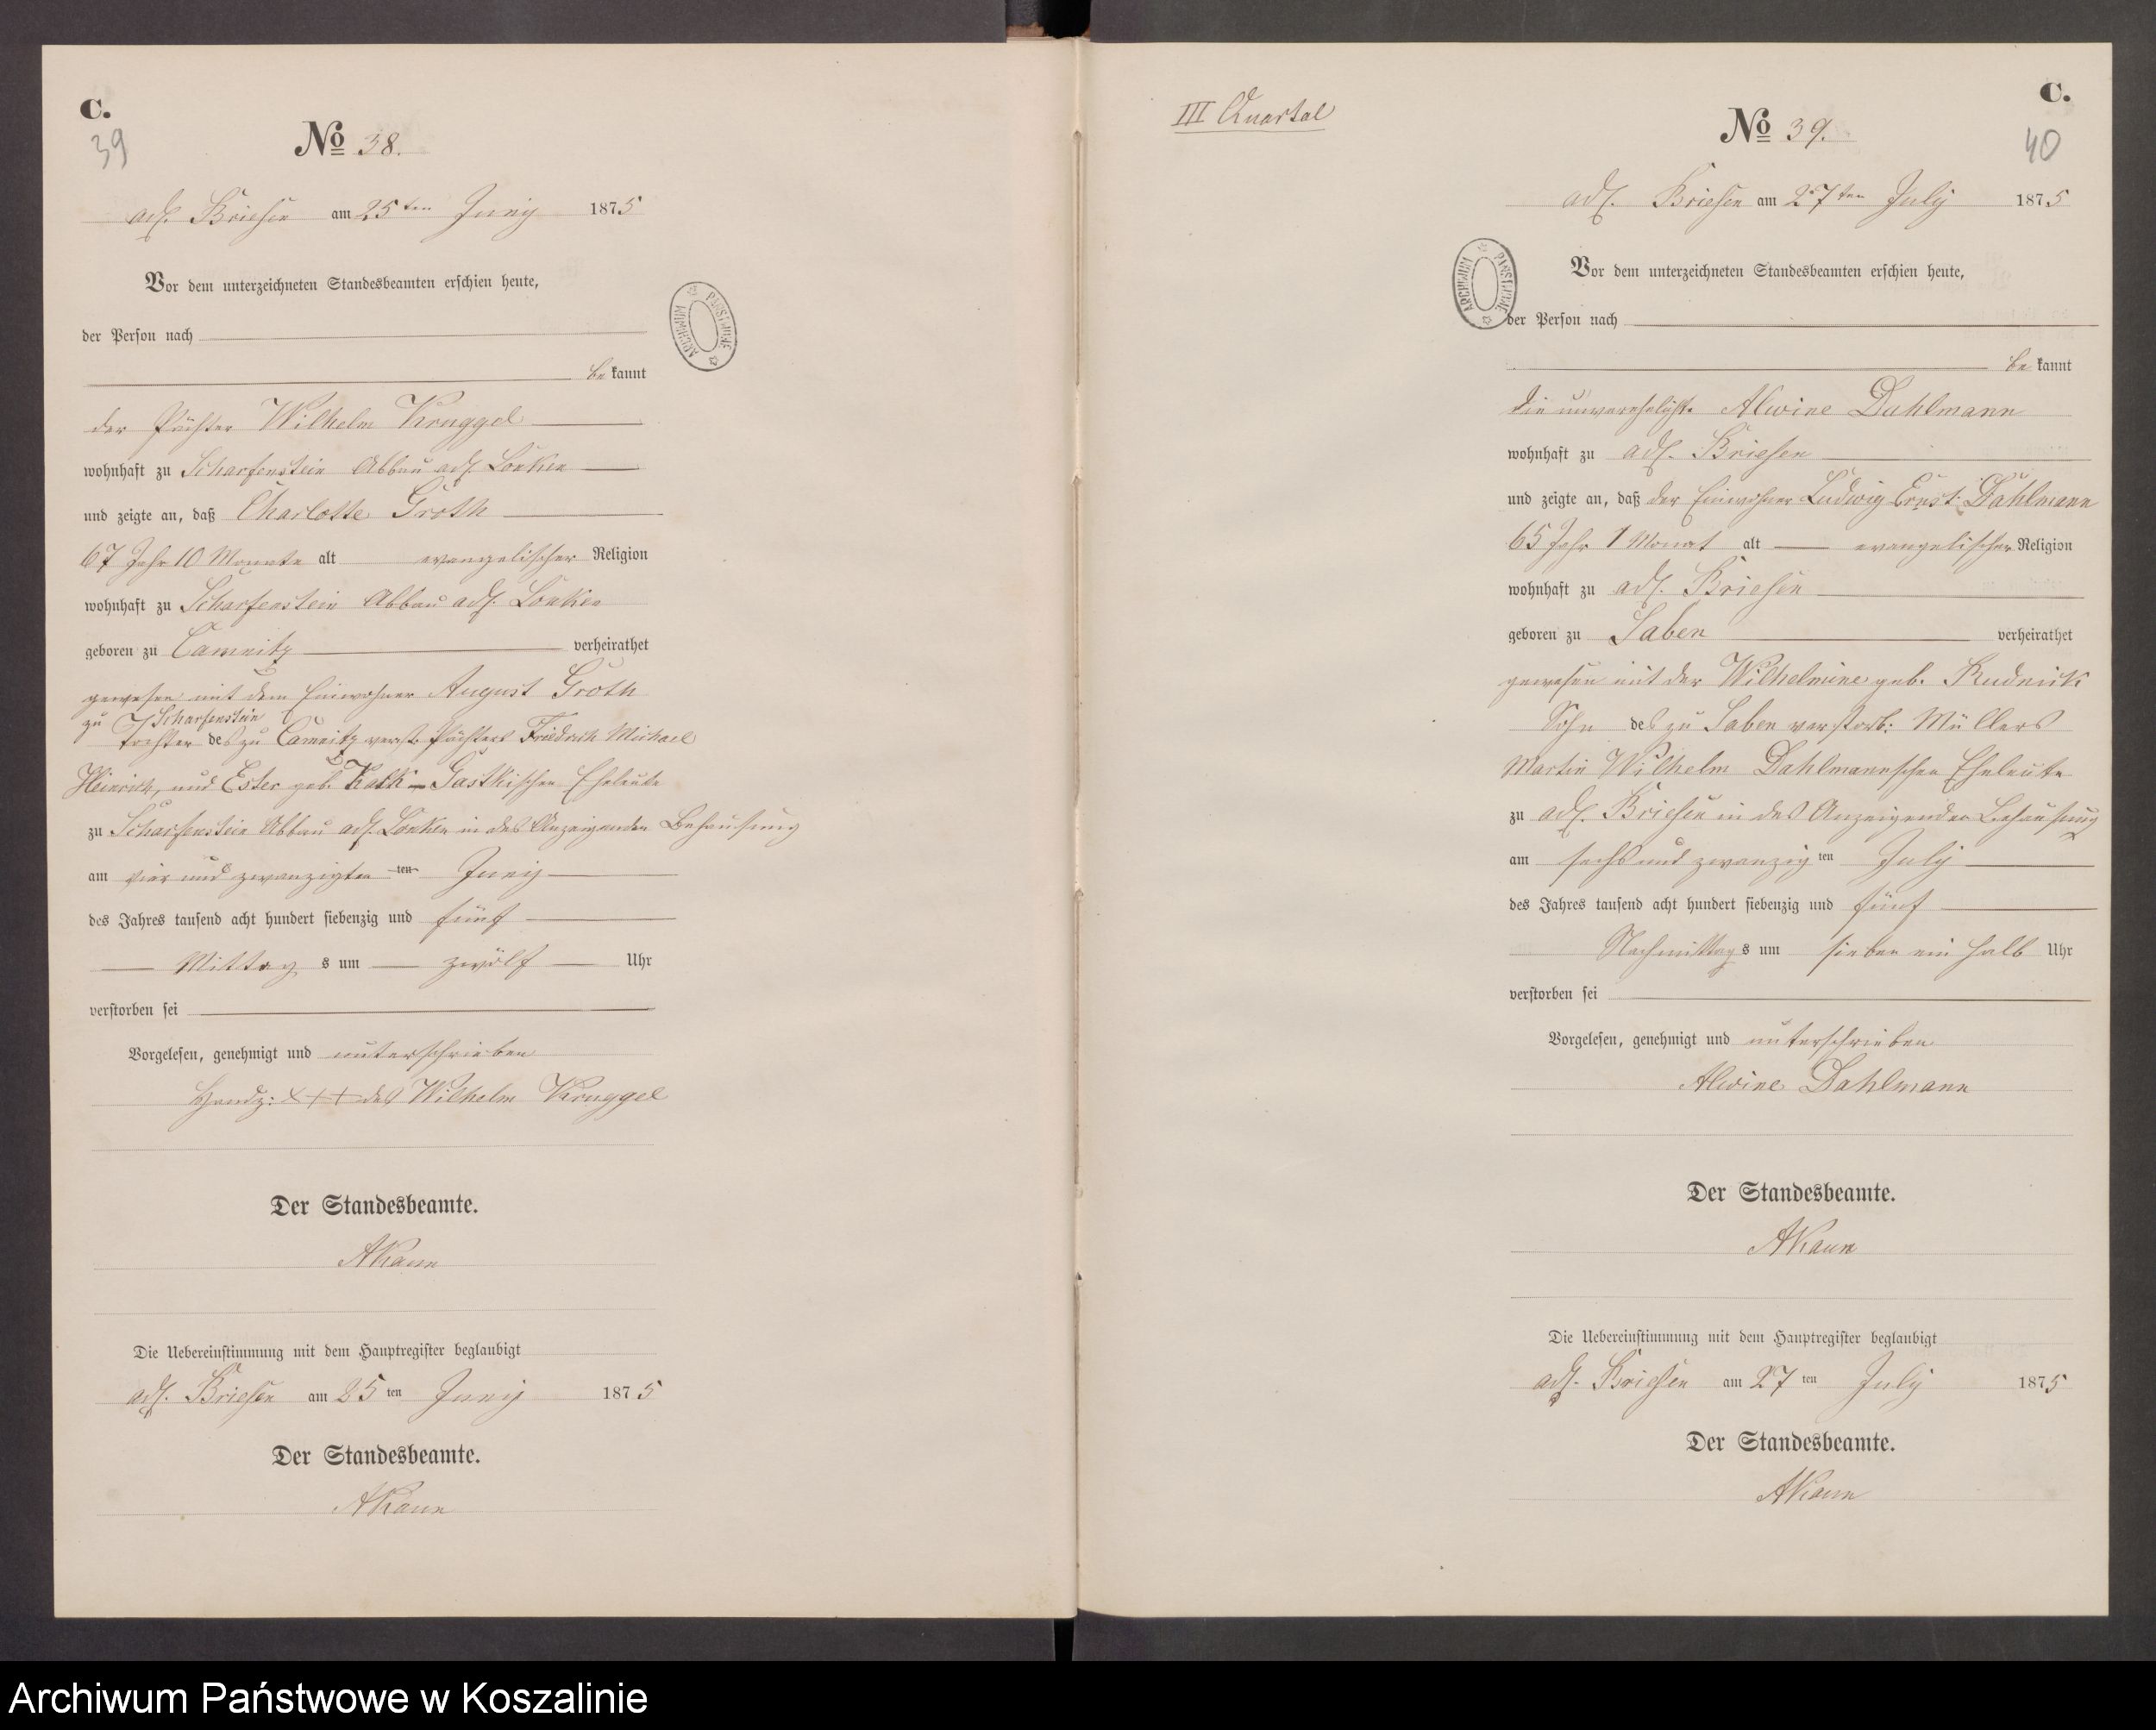 C.
39
No 38.
adl. Briesen am 25ten Juny 1875
Vor dem unterzeichneten Standesbeamten erschien heute,
der Person nach
bekannt
der Pächter Wilhelm Kruggel
wohnhaft zu Scharfenstein Abbau adl. Lonken
und zeigte an, daß Charlotte Groth
67 Jahr 10 Monate alt evangelischer Religion
wohnhaft zu Scharfenstein Abbau adl. Lonken
geboren zu Camnitz verheirathet
gewesen mit dem Einwohner August Groth
zu Scharfenstein
Tochter des zu Camnitz verst. Pächters Friedrich Michael
Heinrich, und Ester geb. Gastkischen Eheleute
zu Scharfenstein Abbau adl. Lonken in des Anzeigenden Behausung
am vier und zwanzigten ten Juny
des Jahres tausend acht hundert siebenzig und fünf
Mittag s um zwölf Uhr
verstorben sei
Vorgelesen, genehmigt und unterschrieben
Handz: +++ des Wilhelm Kruggel
Der Standesbeamte.
AKaun
Die Uebereinstimmung mit dem Hauptregister beglaubigt
adl. Briesen am 25ten Juny 1875
Der Standesbeamte.
AKaun
ARCHIWUM PAŃSTWOWE
III Quartal
C.
40
No 39.
adl. Briesen am 27ten July 1875
Vor dem unterzeichneten Standesbeamten erschien heute,
der Person nach
bekannt
die unverehelichte Alwine Dahlmann
wohnhaft zu adl. Briesen
und zeigte an, daß der Einwohner Ludwig Ernst Dahlmann
65 Jahr 1 Monat alt evangelischer Religion
wohnhaft zu adl. Briesen
geboren zu Saben verheirathet
gewesen mit der Wilhelmine geb. Rudnick
Sohn des zu Saben verstorb: Müllers
Martin Wilhelm Dahlmannschen Eheleute
zu adl. Briesen in des Anzeigenden Behausung
am sechs und zwanzig ten July
des Jahres tausend acht hundert siebenzig und fünf
Nachmittag s um sieben ein halb Uhr
verstorben sei
Vorgelesen, genehmigt und unterschrieben
Alwine Dahlmann
Der Standesbeamte.
AKaun
Die Uebereinstimmung mit dem Hauptregister beglaubigt
adl. Briesen am 27ten July 1875
Der Standesbeamte.
AKaun
ARCHIWUM PAŃSTWOWE
Archiwum Państwowe w Koszalinie